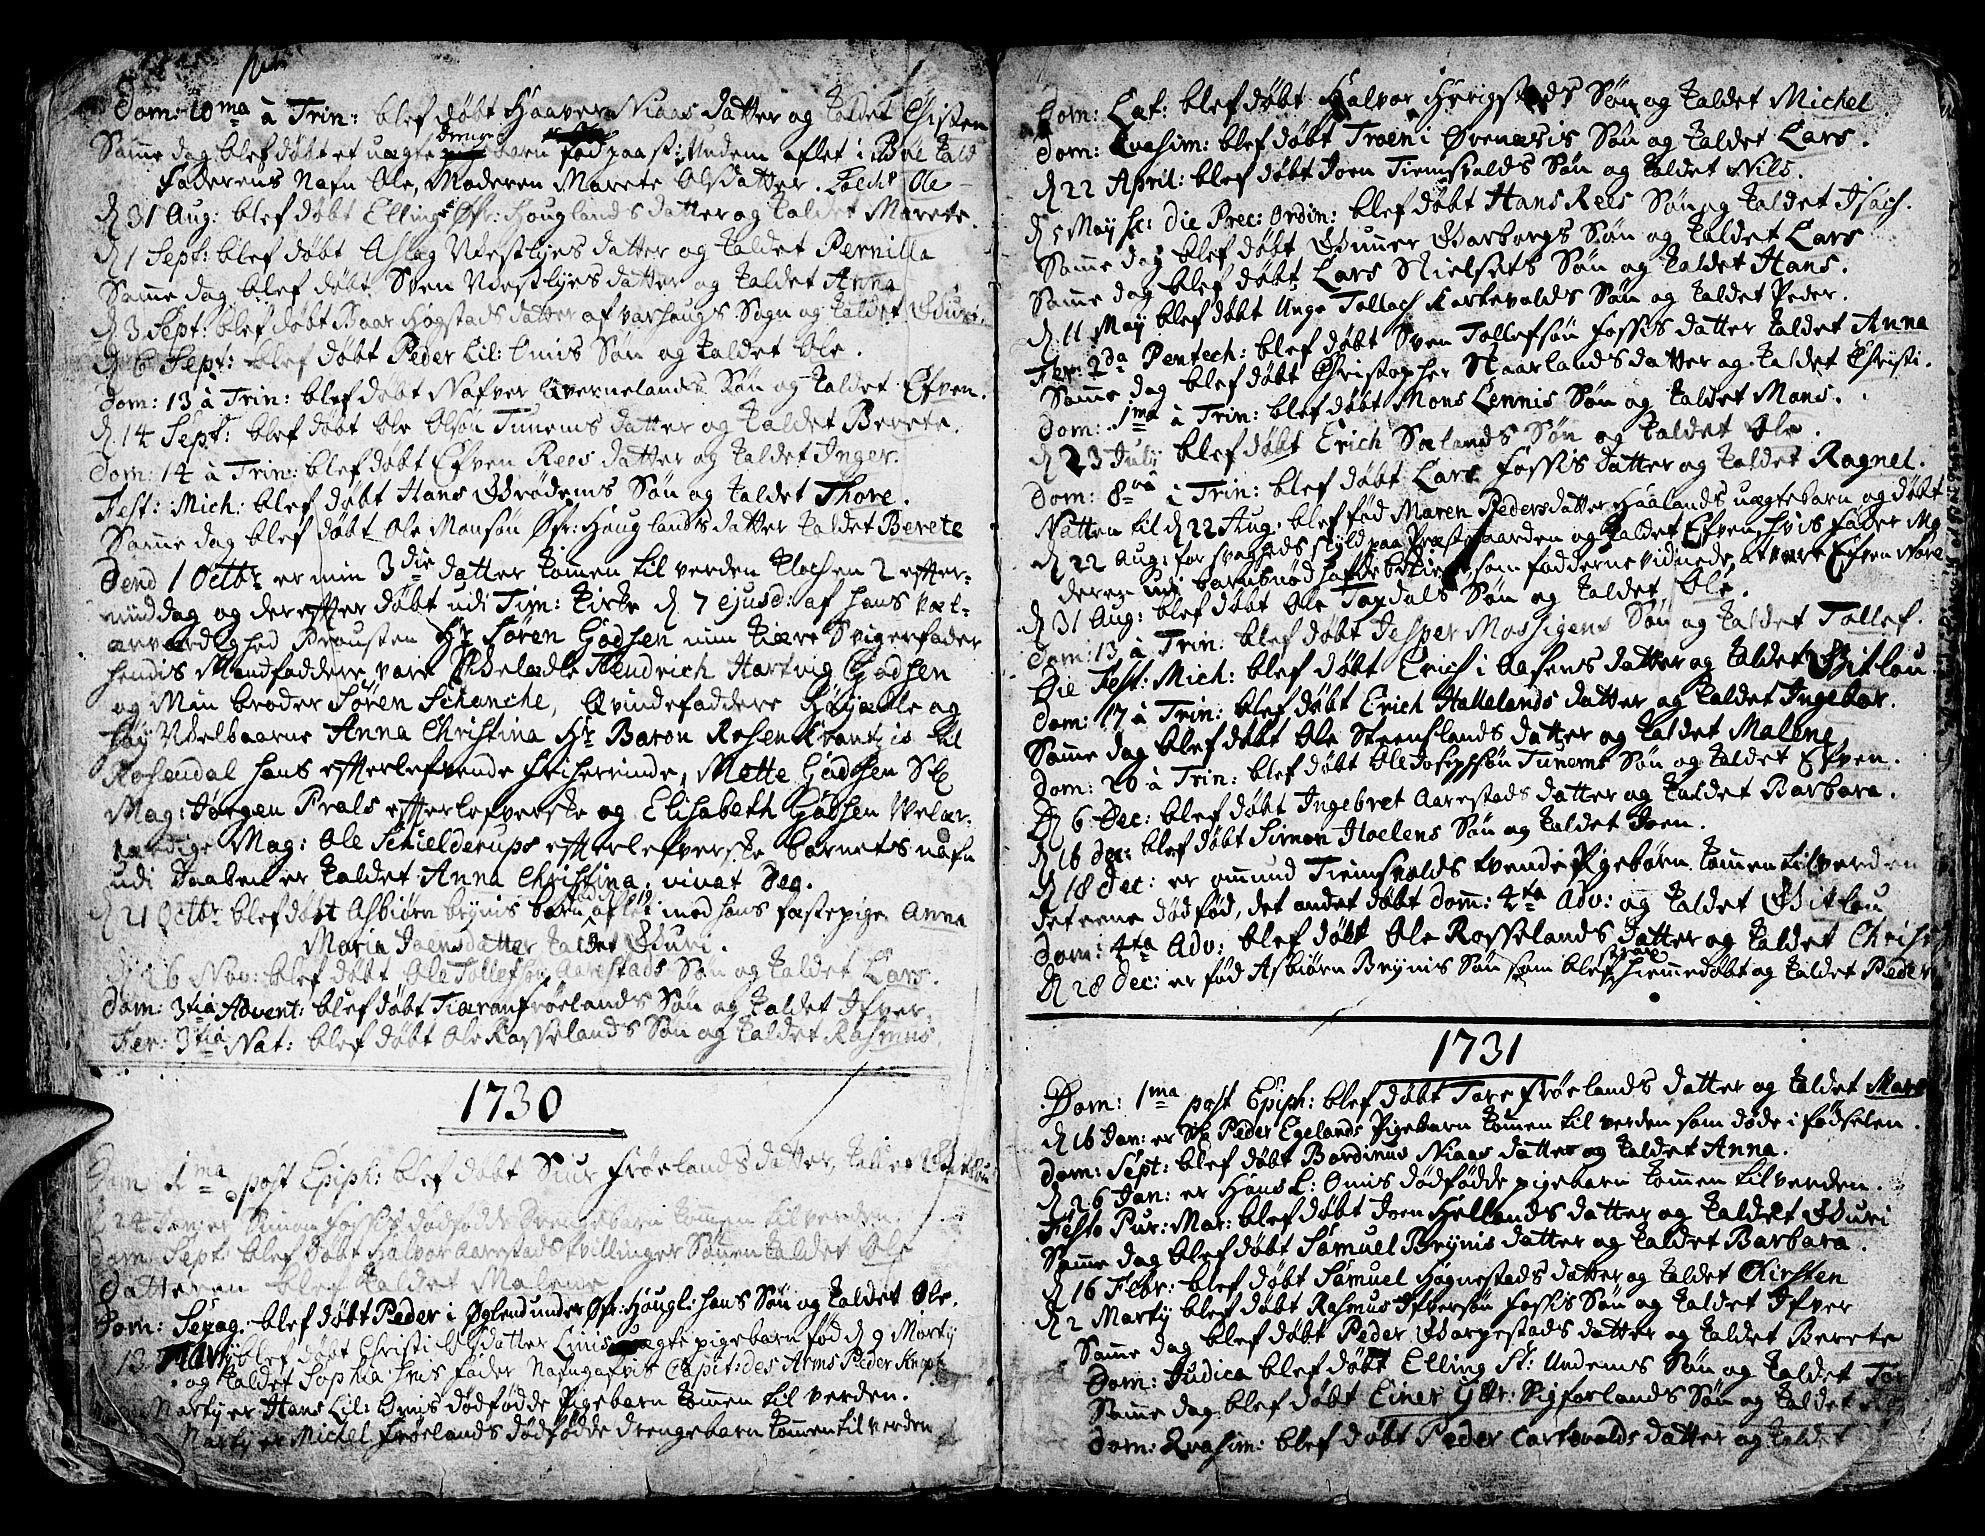 Dom: 10ma à Trin: blef døbt Haaver Niaas datter og kaldet Chisten
Samme dag blef døbt et uægte drenge barn fød paa st: Undem aflet i Bue
faderens Nafn Ole, Moderen Marete Olsdatter. kaldt Ole
d 31 Aug: blef døbt Elling Øfr: Houglands datter og kaldet Marete.
d 1 Sept: blef døbt Aslag Vdestlyes datter og kaldet Pernilla
Samme dag blef døbt Sven Vdestlyes datter og kaldet Anna
d 3 Sept: blef døbt Baar Høgstads datter af varhougs Sogn og kaldet Guri.
d 6 Sept: blef døbt Peder Lil: Omis Søn og kaldet Ole.
Dom: 13 à Trin: blef døbt Nafver Qvernelands Søn og kaldet Efven.
d. 14 Sept: blef døbt Ole Olsøn Tunems datter og kaldet Berete.
Dom: 14 à Trin: blef døbt Efven Rees datter og kaldet Inger.
Fest: Mich: blef døbt Hans Grødems Søn og kaldet Thore.
Samme dag blef døbt Ole Monsøn Øfr: Houglands datter kaldet Berete
Dend 1 Octbr er min 3die datter kommen til verden Klochen 2 efter-
middag og derefter døbt udi Tim: kirke d. 7 ejusd: af hans Vel-
ærværdighed Prousten Hr Søren Godsen min kiære Svigerfader
hendis Mandfaddere vare Velædle Hendrich Hartvig Godsen
og Min broder Søren Schanche, Qvindefaddere Høyædle og
Høy Vdelbaarne Anna Christina Hr Baron Rosenkrantzis til
Rosendal hans efterlefvende friherrinde, Mette Godsen Sl
Mag: Jørgen Prals efterlefverske og Elisabeth Godsen Velær-
værdige Mag: Ole Schielderups efterlefverske barnets nafn
udi Daaben er kaldet Anna Christina. vivat Deo.
d 21 Octbr blef døbt Asbiørn brynis barn aflet med hans fæstepige Anna
Maria Joensdatter kaldet Guri.
d 6 Nov: blef døbt Ole Tollefsøn Aarestads Søn og kaldet Lars.
Dom: 3tia Advent: blef døbt Tiæran frøelands Søn og kaldet Ifver.
Fer: 3tia Nat: blef døbt Ole Rosselands Søn og kaldet Rasmus.
1730
Dom 1ma post Epiph: blef døbt Siur Frøelands datter, kaldet
24 Jan: er Simon Fossis dødfødde drengebarn kommen til verden.
Dom: Sept: blef døbt Halvor Aarestads tvillinger Sønnen kaldet Ole
Datteren blef kaldet Malene
Dom: Sexag. blef døbt Peder i Øglend under Øfr: Hougl: hans Søn og kaldet Ole.
13 Marty blef døbt Christi Olsdatter Linis uægte pigebarn fød d 9 Marty
og kaldet Sophia hvis fader Nafngafvis Capit: des Arms Peder
Marty er Hans Lil: Omis dødfødde Pigebarn kommen til verden.
Marty er Michel frøelands dødfødde drengebarn kommen til verden
Dom: Læt: blef døbt Halvor Herigstads Søn og kaldet Michel
Dom: Qvasim: blef døbt Troen i Øvenæsis Søn og kaldet Lars.
d 22 April: blef døbt Joen Tiemsvolds Søn og kaldet Nils.
d 5 May sc: die Prec: Ordin: blef døbt Hans Rees Søn og kaldet Isach.
Samme dag blef døbt Gunner Garborgs Søn og kaldet Lars
Samme dag blef døbt Lars Nielsets Søn og kaldet Hans.
d 11 May blef døbt Unge Tollach Kartevolds Søn og kaldet Peder.
Fer: 2da Pentech: blef døbt Sven Tollefsøn Fossis datter kaldet Anna
Samme dag blef døbt Christopher Staarlands datter og kaldet Christi.
Dom: 1ma à Trin: blef døbt Mons Lennis Søn og kaldet Mons.
d 23 July blef døbt Erich Sælands Søn og kaldet Ole.
Dom: 8va à Trin: blef døbt Lars Fossis datter og kaldet Ragnel.
Natten til d 22 Aug: blef fød Maren Pedersdatter Haalands uægte barn og døbt
d 22 Aug: for svagheds skyld paa Præstegaarden og kaldet Efven hvis fader
deren udi barnsnød hafde bekiendt, som fadderne vidnede, at være Efven
d 31 Aug: blef døbt Ole Taxdals Søn og kaldet Ole.
Dom: 13 à Trin: blef døbt Jesper Mossigens Søn og kaldet Tollef.
Die Fest: Mich: blef døbt Erich i Aasens datter og kaldet Gitlau
Dom: 17 à Trin: blef døbt Erich Hallelands datter og kaldet Ingebor.
Samme dag blef døbt Ole Steenslands datter og kaldet Malene
Dom: 20 à Trin: blef døbt Ole Josephsøn Tunems Søn og kaldet Efven.
d 6 Dec: blef døbt Ingebret Aarestads datter og kaldet Barbara.
d 16 dec: blef døbt Simon Hoelens Søn og kaldet Joen.
d 18 dec: er omund Tiemsvolds tvende Pigebørn kommen til verden
det eene dødfød, det andet døbt Dom: 4ta Adv: og kaldet Gitlau
Dom: 4ta Adv: blef døbt Ole Rosselands datter og kaldet
d 28 dec: er fød Asbiørn Brynis Søn som blef strax hiemmedøbt og kaldet Peder
1731
Dom: 1ma post Epiph: blef døbt Tore frøelands datter og kaldet
d 16 Jan: er Sl Peder Egelands Pigebarn kommen til verden som døde i fødselen.
Dom: Sept: blef døbt Bardinus Niaas datter og kaldet Anna.
d 26 Jan: er Hans L: Omis dødfødde pigebarn kommen til verden.
Festo Pur: Mar: blef døbt Joen Hellands datter og kaldet Guri
Samme dag blef døbt Samuel Brynis datter og kaldet Barbara.
d 16 Febr: blef døbt Samuel Høgnestads datter og kaldet Chirsten
d 2 Marty blef døbt Rasmus Ifversøn Fossis Søn og kaldet Ifver
Samme dag blef døbt Peder Garpestads datter og kaldet Berete
Dom: Judica blef døbt Elling St: Undems Søn og kaldet
Samme dag blef døbt Einer Ytr: Sigforlands Søn og kaldet
Dom: Qvasim: blef døbt Peder Cartevolds datter og kaldet